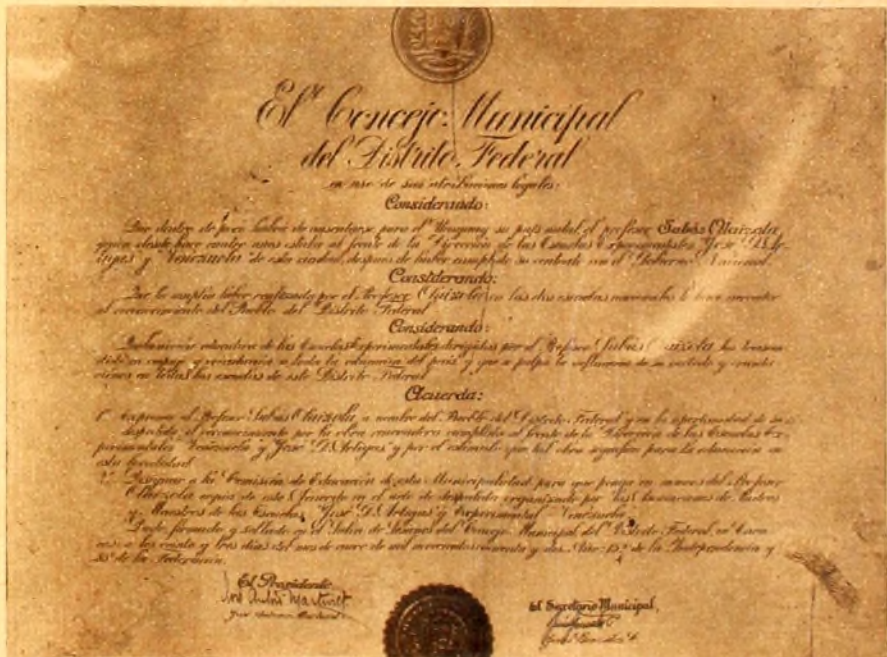 El Concejo Municipal
del Distrito Federal
en uso de sus atribuciones legales:
Considerando:
Que dentro de poco habrá de ausentarse para el Uruguay su país natal, el profesor Sabás Olaizola,
quien desde hace cuatro años estaba al frente de la Dirección de las Escuelas Experimentales "José D. Ar-
tigas y "Venezuela" de esta ciudad, después de haber cumplido su contrato con el Gobierno Nacional.
Considerando:
Que la amplia labor realizada por el Profesor Olaizola en las dos escuelas nacionales le hace acreedor
al reconocimiento del Pueblo del Distrito Federal
Considerando:
educadora de las Escuelas Experimentales dirigidas por el Profesor Sabás Olaizola ha
a toda la educación del país y que se palpa la influencia de su
en todas las escuelas de este Distrito Federal
Acuerda:
1º Expresar al Profesor Sabás Olaizola a nombre del Pueblo del Distrito Federal y en la oportunidad de su
despedida, el reconocimiento por la obra cumplida al frente de la Dirección de las Escuelas Ex-
perimentales "Venezuela" y "José D. Artigas" y por el que tal obra significa para la educación en
esta localidad
2º Designar a la Comisión de Educación de esta Municipalidad para que ponga en manos del Profesor
Olaizola copia de este Acuerdo en el acto de despedida organizado por las de Padres
y Maestros de las Escuelas "José D. Artigas y Experimental Venezuela
Dado firmado y sellado en el Salón de Sesiones del Concejo Municipal del Distrito Federal en Cara-
cas a los y tres días del mes de enero de mil novecientos y dos. Año de la Independencia y
de la Federación.
El Presidente
El Secretario Municipal,